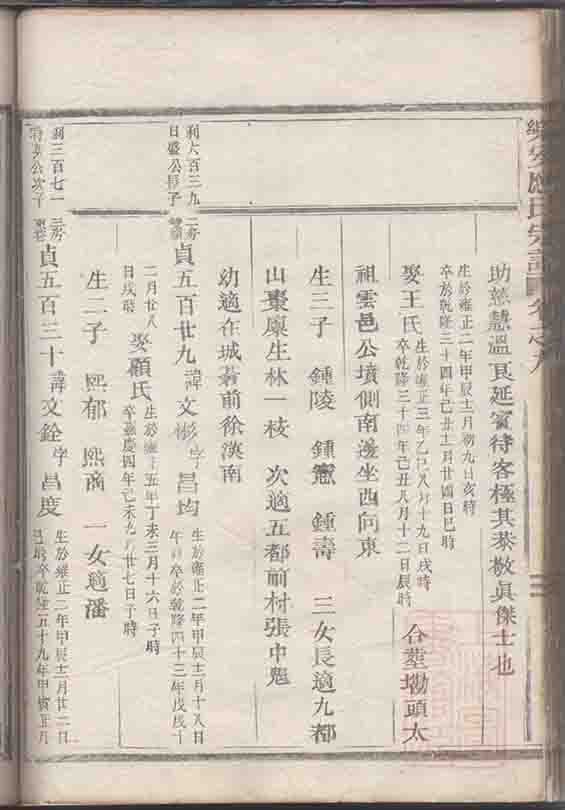 樂安應氏宗譜 卷之九
助慈慧溫良延賓待客極其恭敬眞傑士也
生於雍正二年甲辰十一月初九日亥時
卒於乾隆三十四年己丑十二月廿四日巳時
娶王氏
生於雍正三年乙巳八月十九日戌時
卒乾隆三十四年己丑八月十二日辰時
合塟坳頭太
祖雲邑公墳側南邊坐西向東
生三子 鍾陵 鍾 鍾壽 三女長適九都
山棗廩生林一枝 次適五都前村張中魁
幼適在城 前徐漢南
利六百三九
日盛公長子
貞五百廿九
諱文彬字昌均
生於雍正二年甲辰十一月十八日
午時卒於乾隆四十三年戊戌十
二月廿八
日戌時
娶顧氏
生於雍正五年丁未三月十六日子時
卒嘉慶四年己未九月廿七日子時
生二子 熙郁 熙商 一女適潘
利三百七一
公次子
貞五百三十
諱文銓字昌度
生於雍正二年甲辰十一月廿二日
巳時卒乾隆五十九年甲寅正月